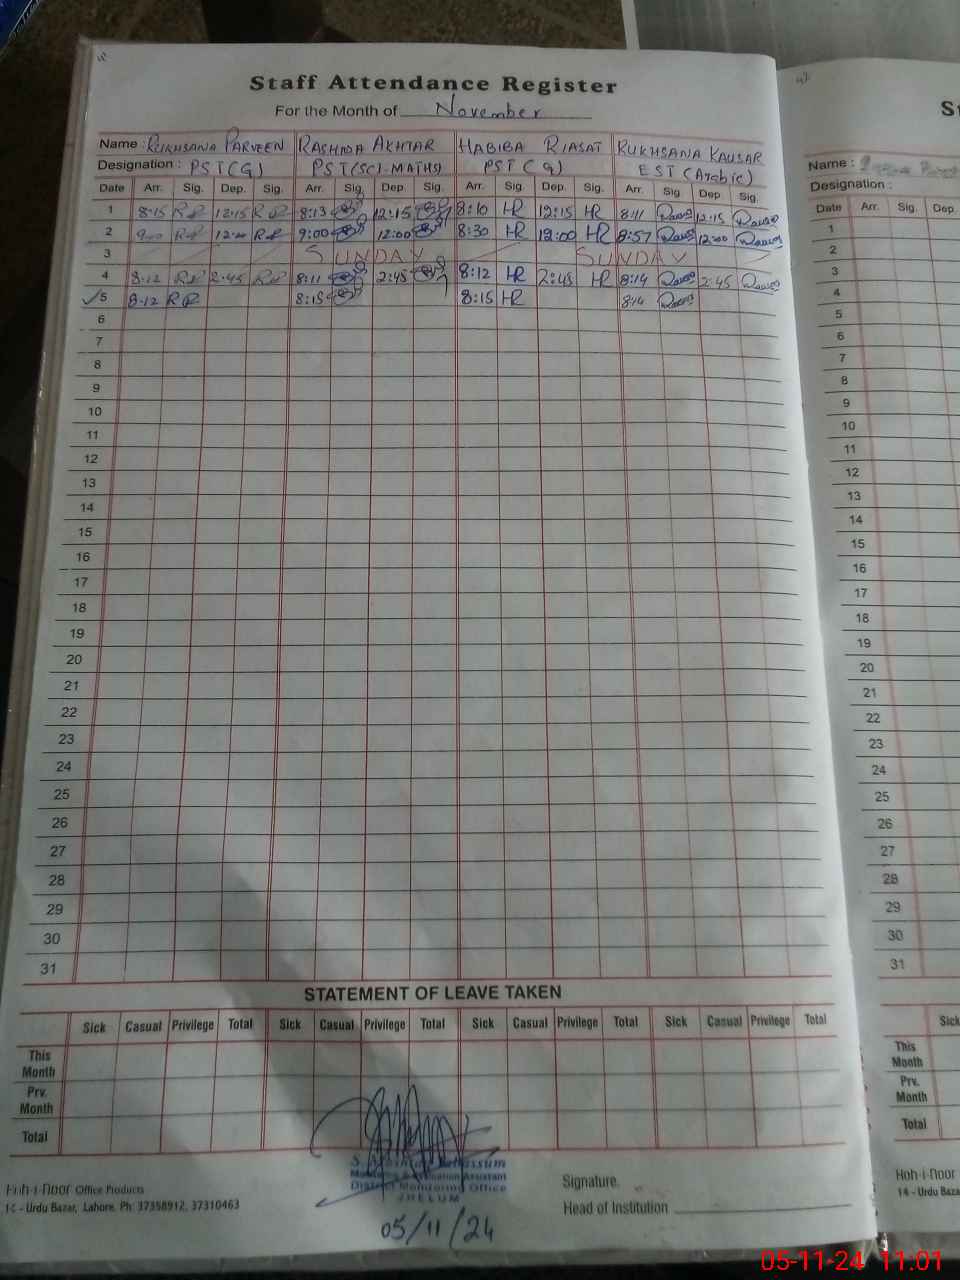 Staff Attendance Register
For the Month of November
Name : RUKHSANA PARVEEN RASHDA AKHTAR HABIBA RIASAT RUKHSANA KAUSAR
Designation : PST(G) PST(SCI-MATHS) PST(G) EST (Arabic)
Date Arr. Sig. Dep. Sig. Arr. Sig. Dep. Sig. Arr. Sig. Dep. Sig. Arr. Sig. Dep. Sig.
1 8:15 RP 12:15 RP 8:13 12:15 8:10 HR 12:15 HR 8:11 12:15
2 9:00 RP 12:00 RP 9:00 12:00 8:30 HR 12:00 HR 8:57 12:00
3 SUNDAY SUNDAY
4 8:12 RP 2:45 RP 8:11 2:45 8:12 HR 2:45 HR 8:14 2:45
5 8:12 RP 8:15 8:15 HR 8:14
6
7
8
9
10
11
12
13
14
15
16
17
18
19
20
21
22
23
24
25
26
27
28
29
30
31
STATEMENT OF LEAVE TAKEN
Sick Casual Privilege Total Sick Casual Privilege Total Sick Casual Privilege Total Sick Casual Privilege Total
This Month
Prv. Month
Total
Monitoring & Evaluation Assistant
District Monitoring Office
JHELUM
05/11/24
Signature.
Head of Institution
Koh-i-Noor Office Products
14 - Urdu Bazar, Lahore. Ph: 37358912, 37310463
Name :
Designation :
Date Arr. Sig. Dep.
1
2
3
4
5
6
7
8
9
10
11
12
13
14
15
16
17
18
19
20
21
22
23
24
25
26
27
28
29
30
31
Sick
This Month
Prv. Month
Total
Koh-i-Noor
14 - Urdu Bazar,
05-11-24 11:01